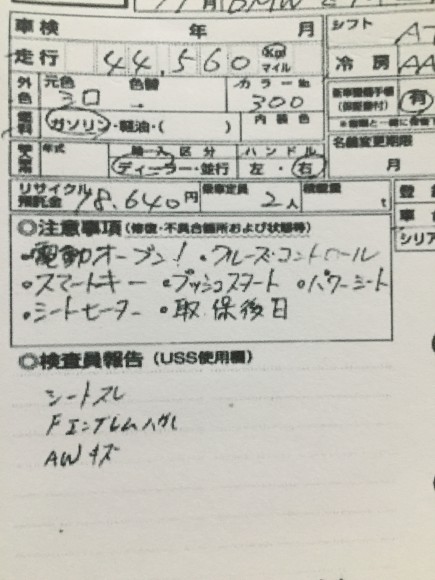 車検 年 月 シフト AT
走行 44,560 Km マイル 冷房 AA
外色 元色 シロ 色替 カラーNo. 300 有
燃料 ガソリン・軽油・( ) 内装色
年式 輸入区分 ハンドル 名義変更期限
ディーラー・並行 左・右 月
リサイクル預託金 18,640円 乗車定員 2人 積載量 t 登
◎注意事項(修復・不具合箇所および状態等) 車
・電動オープン!・クルーズ・コントロール シリア
・スマートキー ・プッシュスタート ・パワーシート
・シートヒーター ・取保後日
◎検査員報告(USS使用欄)
シートスレ
Fエンブレムハガレ
AWキズ